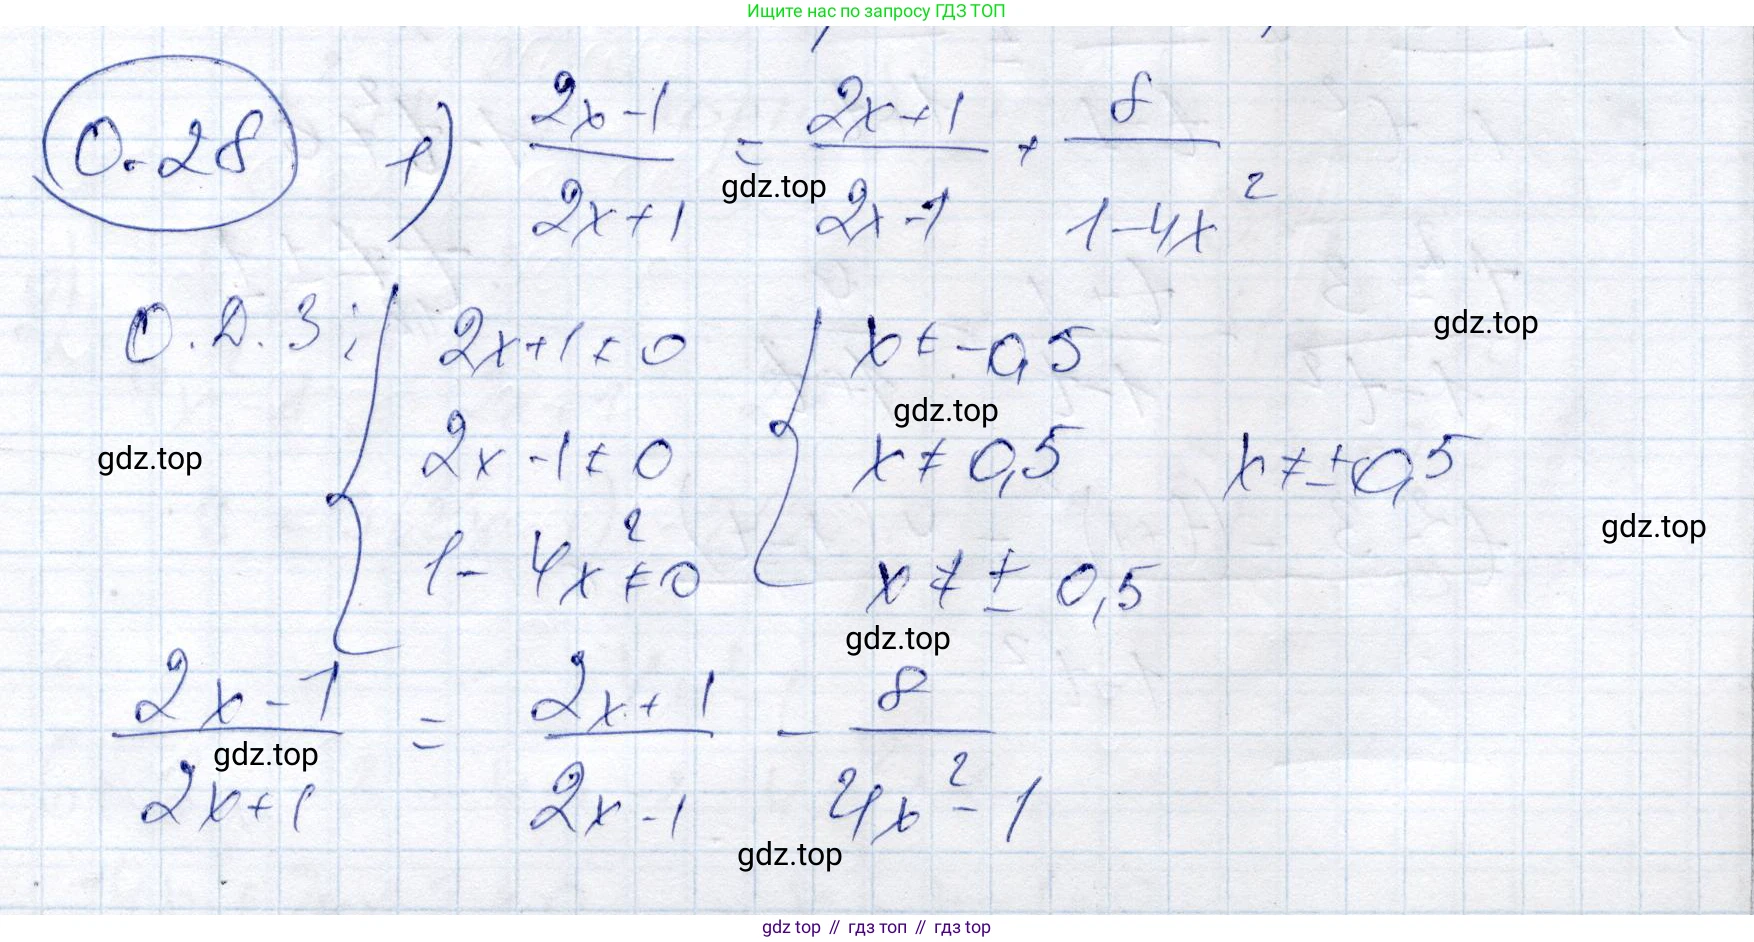 Ищите нас по запросу ГДЗ ТОП
0.28 1) (2x-1)/(2x+1) = (2x+1)/(2x-1) + 8/(1-4x²)
gdz.top
О.Д.З: { 2x+1≠0 { x≠-0,5
gdz.top
gdz.top
2x-1≠0 x≠0,5 x≠±0,5
gdz.top
gdz.top
1-4x²≠0 x≠±0,5
gdz.top
(2x-1)/(2x+1) = (2x+1)/(2x-1) - 8/(4x²-1)
gdz.top
gdz.top
gdz top // гдз топ // гдз top